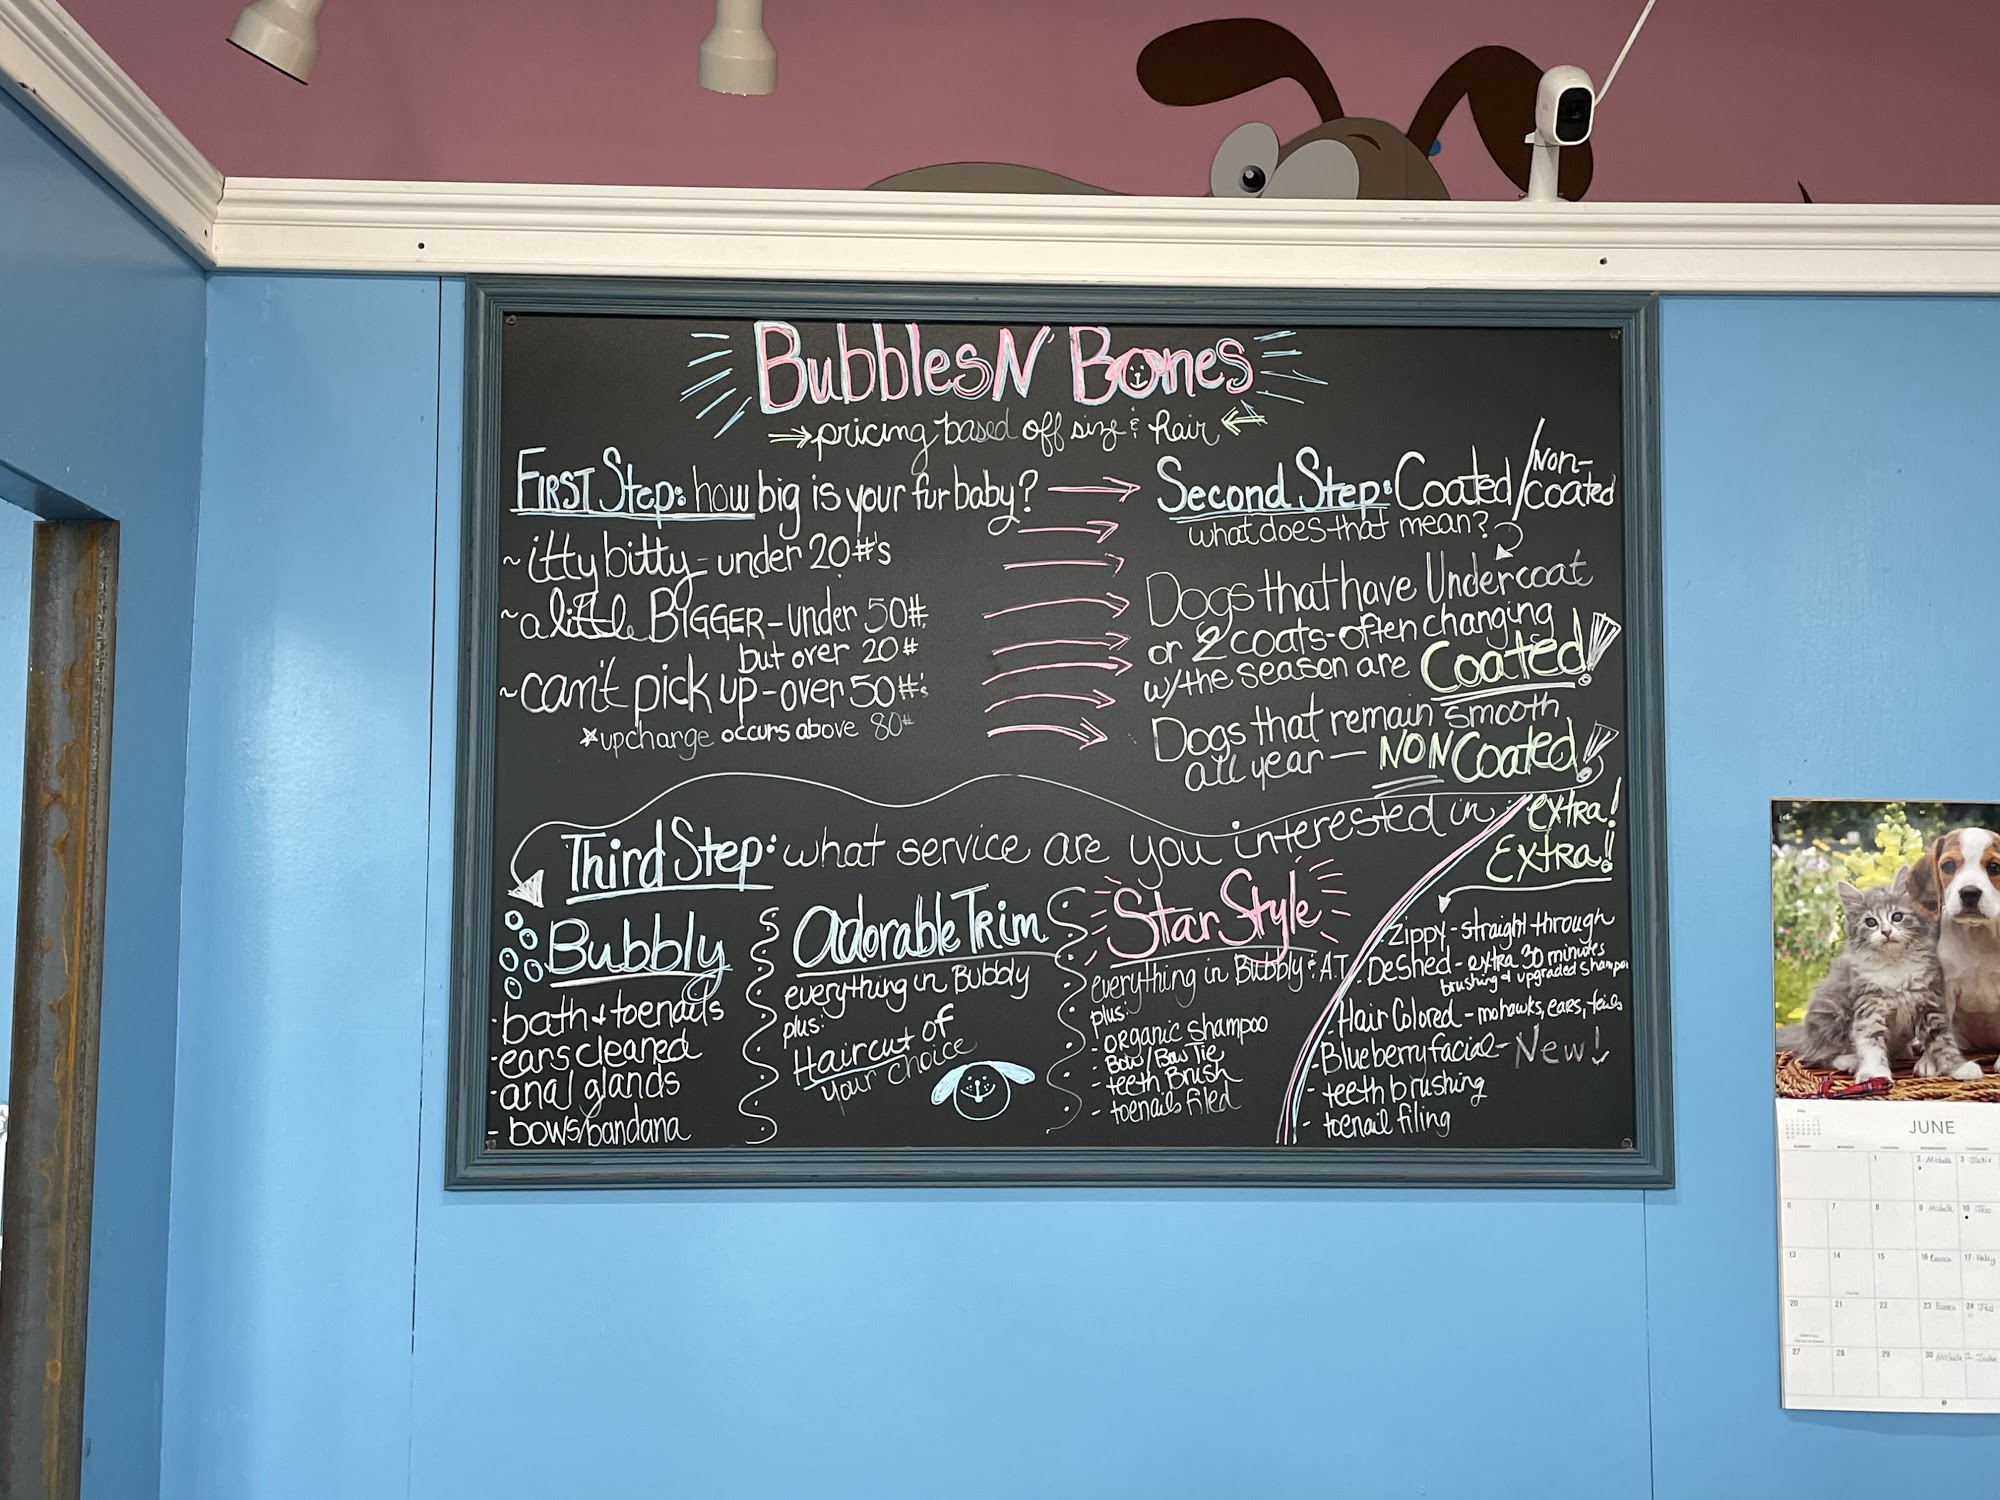 Bubbles N' Bones
pricing based off size & hair
First Step: how big is your fur baby?
~itty bitty - under 20#'s
~a little BIGGER - under 50#,
but over 20#
~can't pick up - over 50#'s
*upcharge occurs above 80#
Second Step: Coated/Non-coated
what does that mean?
Dogs that have Undercoat
or 2 coats - often changing
w/the season are Coated!
Dogs that remain smooth
all year — NON Coated!
Third Step: what service are you interested in
Bubbly
-bath + toenails
-ears cleaned
-anal glands
- bows/bandana
Adorable Trim
everything in Bubbly
plus:
Haircut of
your choice
Star Style
everything in Bubbly & A.T.
plus:
- organic shampoo
- Bow/Bow Tie
- teeth Brush
- toenails filed
extra!
Extra!!
-Zippy - straight through
-Deshed - extra 30 minutes
brushing & upgraded shampoo
-Hair Colored - mohawks, ears, tails
-Blueberry facial - New!
- teeth brushing
- toenail filing
JUNE
1 2 Michelle 3 Jackie
6 7 8 9 Michelle 10 Jess
13 14 15 16 17
20 21 22 23 24
27 28 29 30 Michelle 1 Jackie